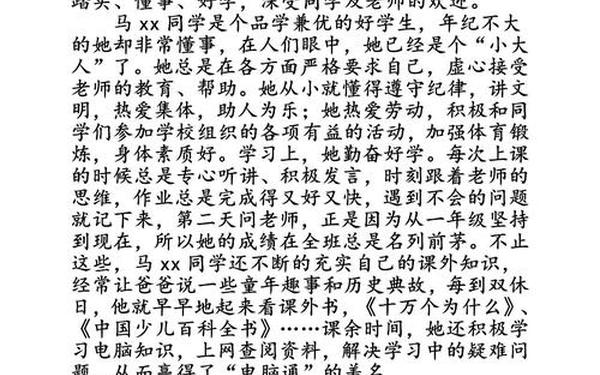 踏实、懂事、好学，深受同学及老师的欢迎。
马 xx 同学是个品学兼优的好学生，年纪不大
的她却非常懂事，在人们眼中，她已经是个“小大
人”了。她总是在各方面严格要求自己，虚心接受
老师的教育、帮助。她从小就懂得遵守纪律，讲文
明，热爱集体，助人为乐；她热爱劳动，积极和同
学们参加学校组织的各项有益的活动，加强体育锻
炼，身体素质好。学习上，她勤奋好学。每次上课
的时候总是专心听讲、积极发言，时刻跟着老师的
思维，作业总是完成得又好又快，遇到不会的问题
就记下来，第二天问老师，正是因为从一年级坚持
到现在，所以她的成绩在全班总是名列前茅。不止
这些，马 xx 同学还不断的充实自己的课外知识，
经常让爸爸说一些童年趣事和历史典故，每到双休
日，他就早早地起来看课外书，《十万个为什么》、
《中国少儿百科全书》……课余时间，她还积极学
习电脑知识，上网查阅资料，解决学习中的疑难问
题，从而赢得了“电脑通”的美名。